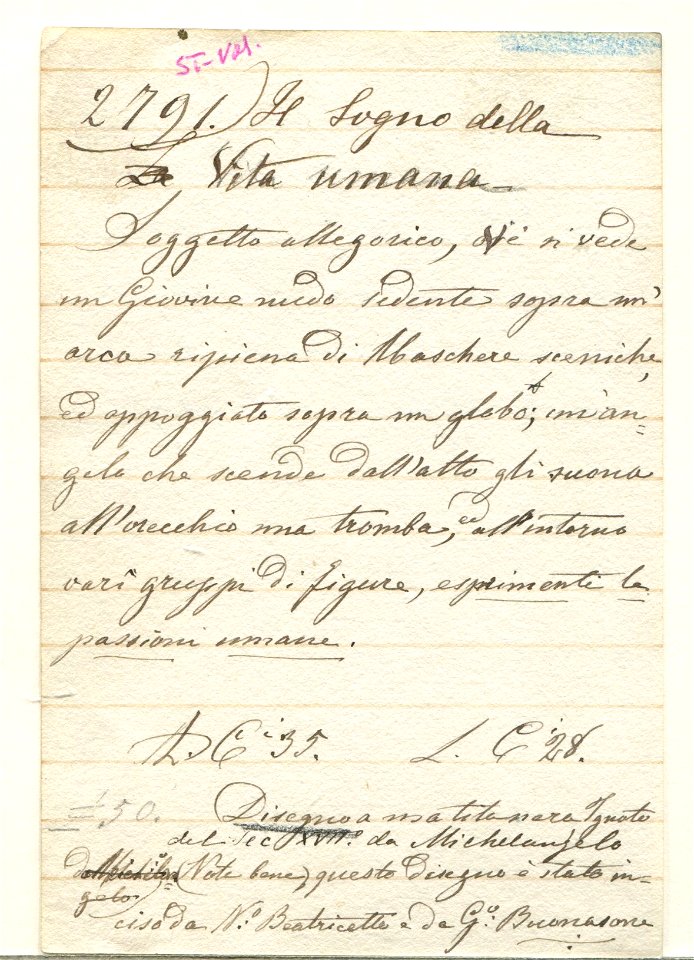 ST-Vol.
2791.) Il Sogno della
Vita umana
Soggetto allegorico, ov'è si vede
un Giovine nudo sedente sopra un'
arca ripiena di Maschere sceniche,
ed appoggiato sopra un globo; un'an=
gelo che scende dall'alto gli suona
all'orecchio una tromba, ed all'intorno
varî gruppi di figure, esprimenti le
passioni umane.
A. Ci 35. L. Ci 28.
£ 50. Disegno a matita nera Ignoto
del Sec XVII.o da Michelangelo
(Nota bene) questo disegno è stato in-
ciso da N.o Beatricetto e da G.o: Buonasone